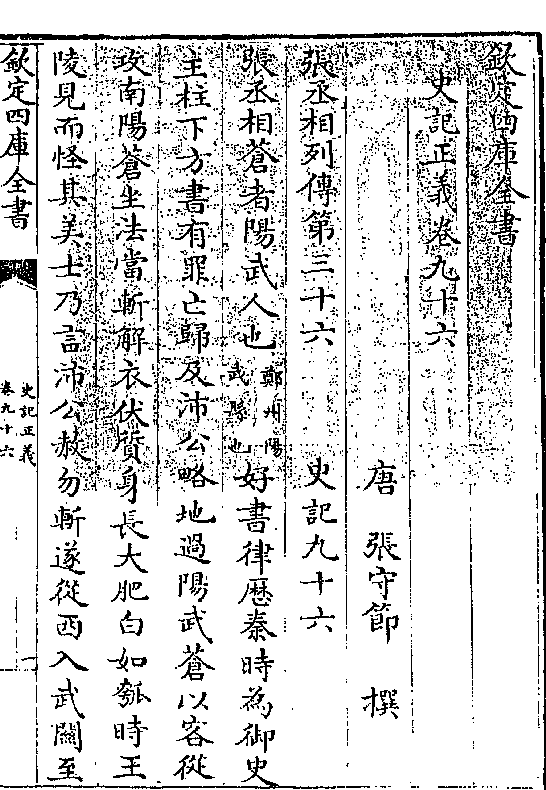 欽定四庫全書
史記正義卷九十六
唐 張守節 撰
張丞相列傳第三十六 史記九十六
張丞相蒼者陽武人也鄭州陽武縣也好書律歷秦時為御史
主柱下方書有罪亡歸及沛公略地過陽武蒼以客從
攻南陽蒼坐法當斬解衣伏質身長大肥白如瓠時王
陵見而怪其美士乃言沛公赦勿斬遂從西入武關至
欽定四庫全書
史記正義
卷九十六
一